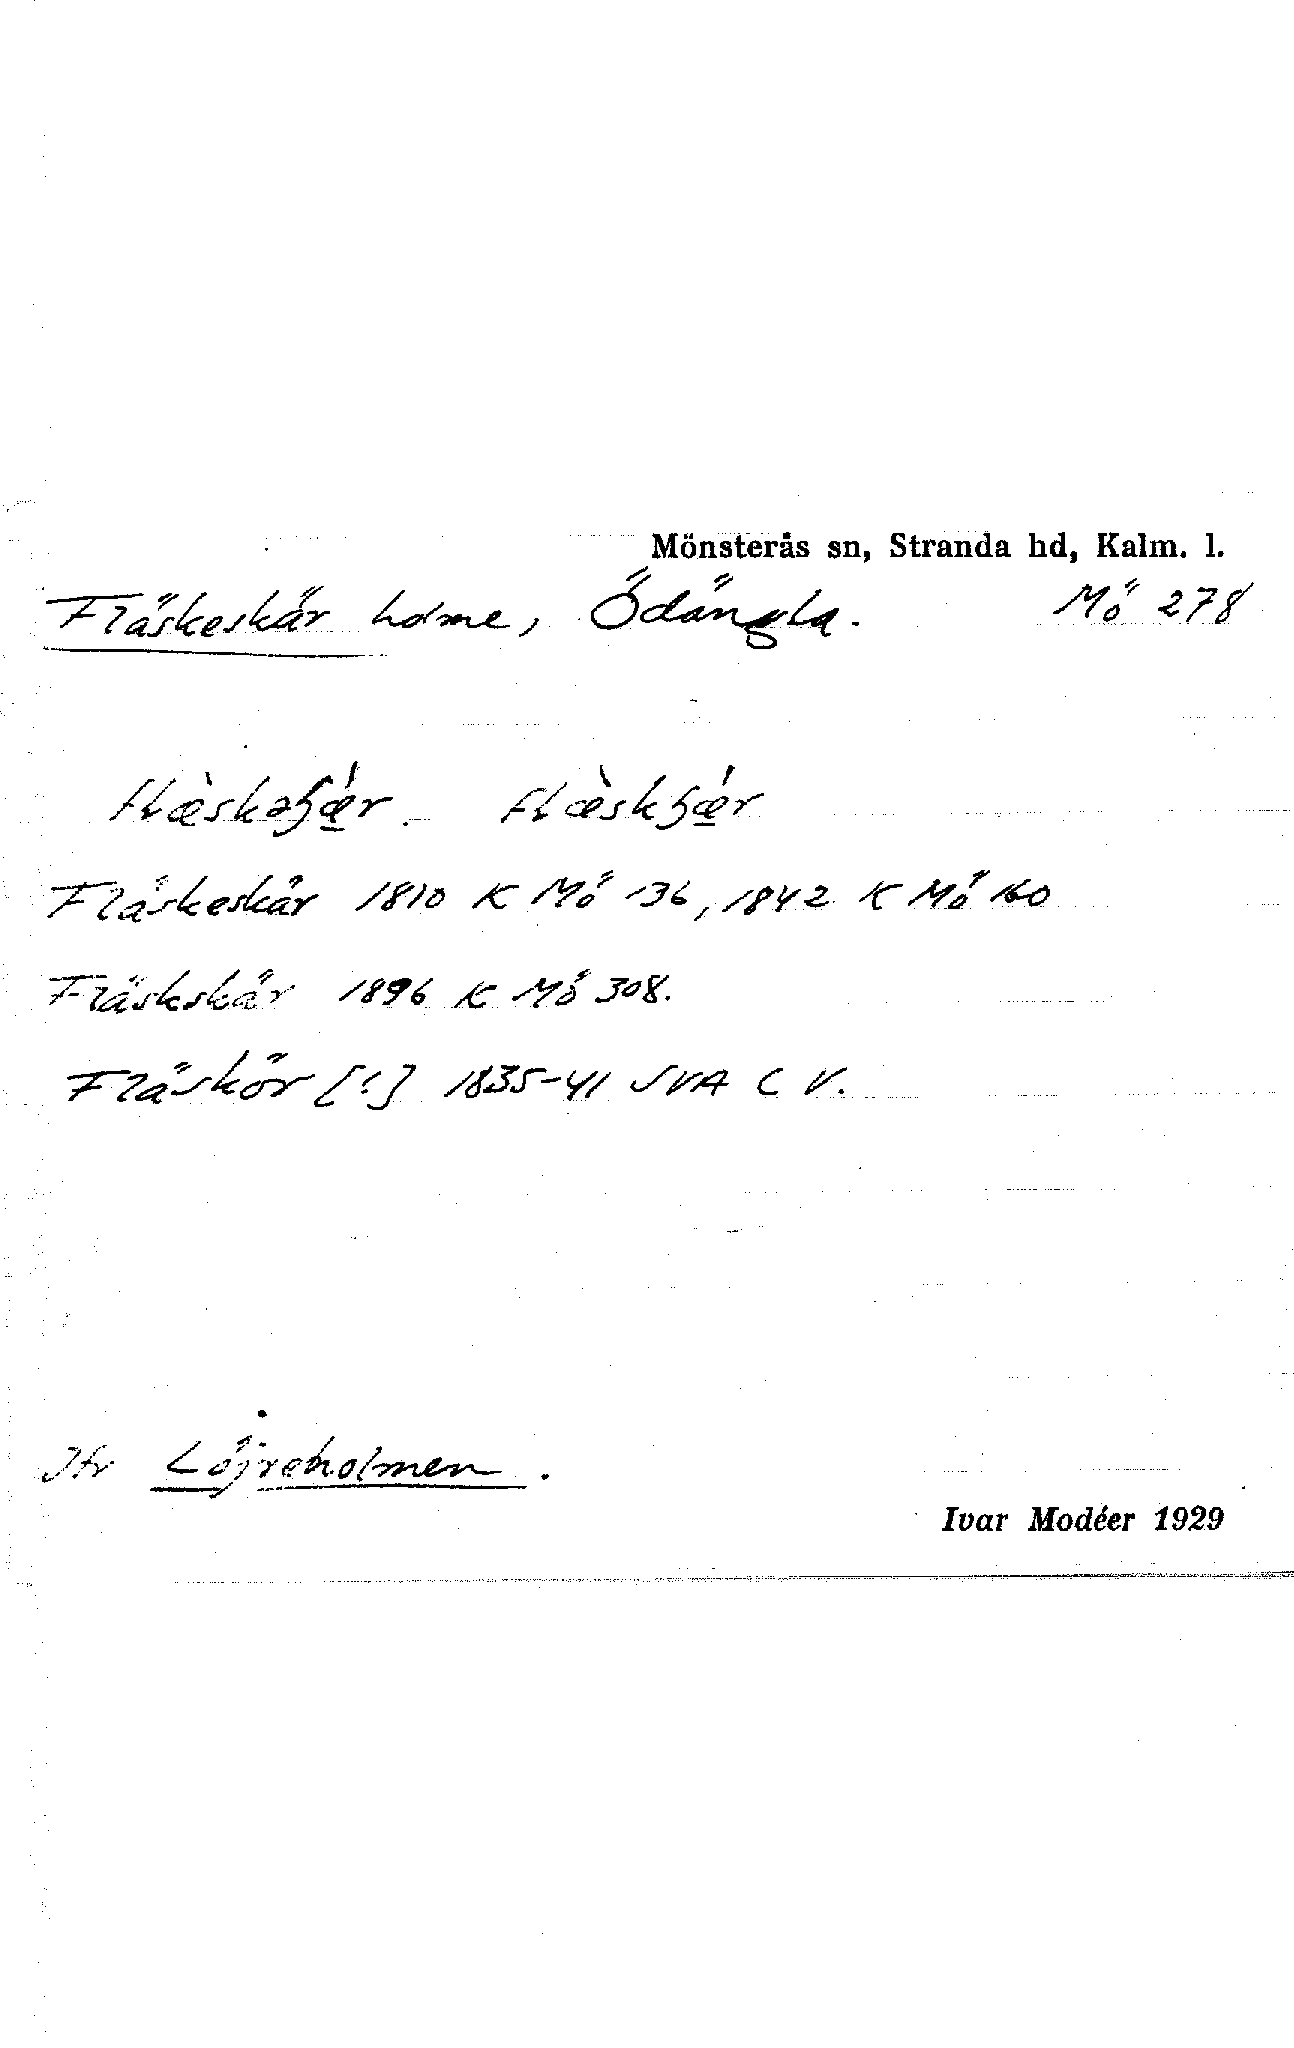 Mönsterås sn, Stranda hd, Kalm. l.
Fläskeskär holme, Ödängla. Mö 278
flæ̀skəʂǽ̲r flæ̀skʂǽ̲r
Fläskeskär 1810 K Mö 136, 1842 K Mö 160
Fläskskär 1896 K Mö 308.
Fläskör [!] 1835-41 SVA C V.
Jfr Löjreholmen.
Ivar Modéer 1929